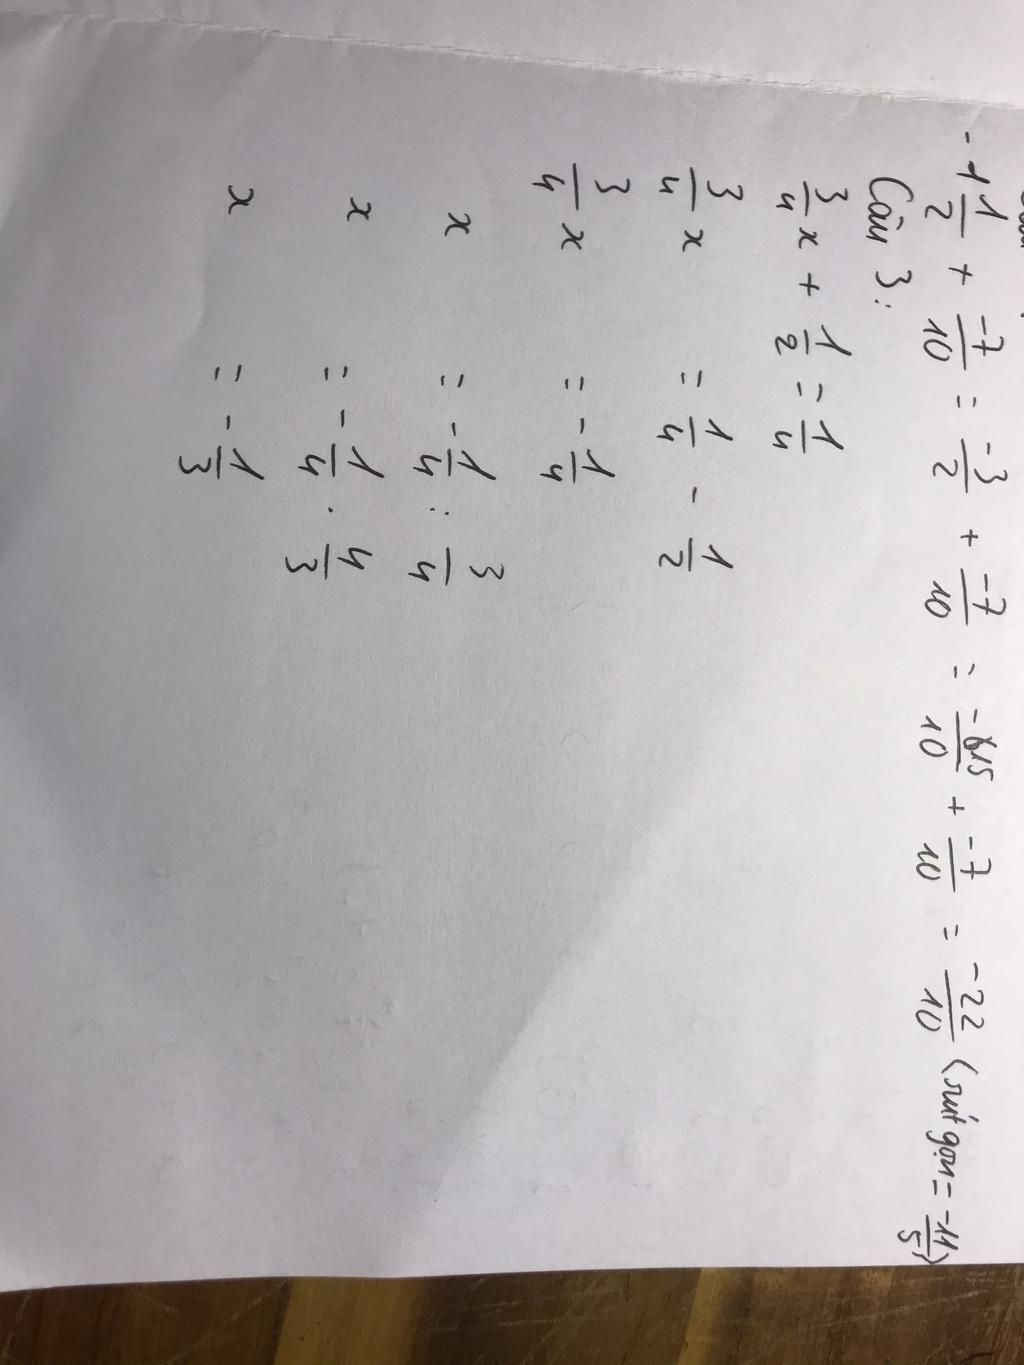 -1 1/2 + -7/10 = -3/2 + -7/10 = -15/10 + -7/10 = -22/10 (rút gọn = -11/5)
Câu 3:
3/4 x + 1/2 = 1/4
3/4 x = 1/4 - 1/2
3/4 x = -1/4
x = -1/4 : 3/4
x = -1/4 . 4/3
x = -1/3